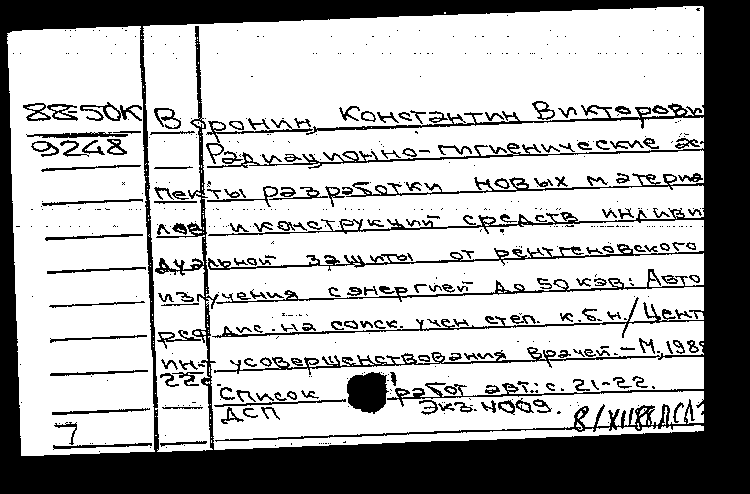 88-50К Воронин, Константин Викторови
9248 Радиационно-гигиенические ас-
пекты разработки новых материа
лов и конструкций средств индиви
дуальной защиты от рентгеновского
излучения с энергией до 50 кэв: Авто
реф. дис. на соиск. учен. степ. к.б.н./Цент
ин-т усовершенствования врачей.-М,1988
22с
Список работ авт.: с. 21-22.
ДСП Экз. N009.
7